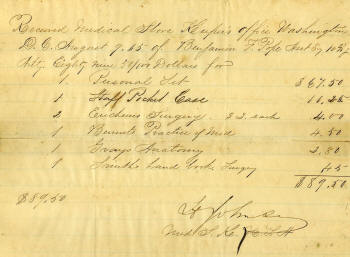 Received Medical Store Keepers Office Washington
D.C. August 9. 65 of Benjamin F. Pope Act
Eighty nine 50/100 Dollars for
1 Personal Set $67.50
1 Staff Pocket Case 11.25
2 Erichsens Surgery $2. each 4.00
1 Practice of Med 4.50
1 Grays Anatomy 2.80
1 Smiths Hand book Surgery 45
$89.50
$89.50
Johnson
Med S. K. U S A